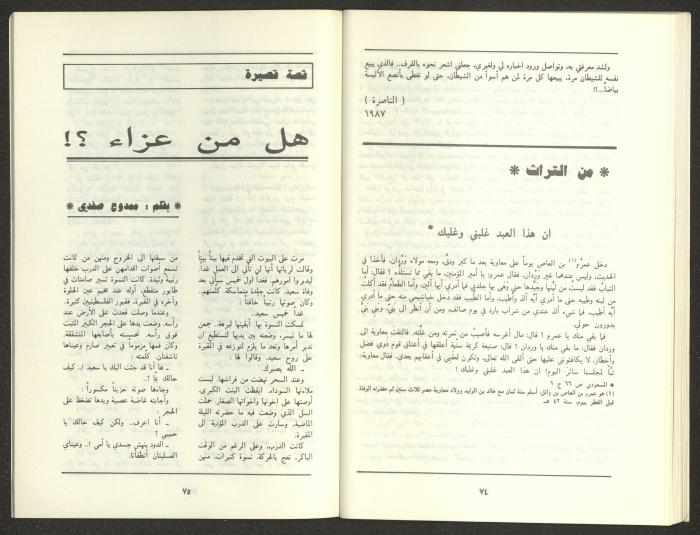 ولشد معرفتي به، وتواصل ورود اخباره لي ولغيري، جعلني اشعر نحوه بالقرف.. فالذي يبيع
نفسه للشيطان مرة، يبيعها كل مرة لمن هم أسوأ من الشيطان، حتى لو تغطى بأنصع الألبسة
بياضاً...!!
( الناصرة )
١٩٨٧
* من التراث *
ان هذا العبد غلبني وغلبك *
دخل عمرو(١) بن العاص يوماً على معاوية بعد ما كبر ودق، ومعه مولاه وردان، فأخذا في
الحديث، وليس عندهما غير وردان، فقال عمرو: يا أمير المؤمنين، ما بقي مما تستلذه؟ فقال: أما
النساء فلا
الثياب فقد لبست من لينها وجيدها حتى وهى بها جلدي فما أدري أيها ألين، وأما الطعام فقد أكلت
من لينه وطيبه حتى ما أدري أيه ألذ وأطيب، وأما الطيب فقد دخل خياشيمي منه حتى ما أدري
أيه أطيب، فما شيء ألذ عندي من شراب بارد في يوم صائف، ومن أن أنظر الى بني، وبني بني
يدورون حولي.
فما بقي منك يا عمرو؟ قال: مال أغرسه فأصيب من ثمرته ومن غلته. فالتفت معاوية الى
وردان فقال: ما بقي منك يا وردان؟ قال: صنيعة كريمة سنية أعلقها في أعناق قوم ذوي فضل
وأخطار، لا يكافئونني عليها حتى ألقى الله تعالى، وتكون لعقبي في أعقابهم بعدي. فقال معاوية:
تباً لمجلسنا سائر اليوم! ان هذا العبد غلبني وغلبك!
* المسعودي ص ٦٦ ج ٩
(١) هو عمرو بن العاص بن وائل، أسلم سنة ثمان مع خالد بن الوليد وولاه معاوية مصر ثلاث سنين ثم حضرته الوفاة
قبل الفطر بيوم. سنة ٤٣ هـ.
٧٤
قصة قصيرة
هل من عزاء ؟!
* بقلم : ممدوح صفدي *
مرت على البيوت التي تخدم فيها بيتاً بيتاً
وقالت لرباتها أنها لن تأتي الى العمل غداً،
ليدبروا أمورهم. فغداً أول خميس سيأتي بعد
وفاة سعيد. كانت جلدة متماسكة. كلمتهم..
وكان صوتها رتيباً خافتاً :
غداً خميس سعيد.
تمسكت النسوة بها. أبقينها لبرهة. جمعن
لها ما تيسر، وضعنه بين يديها لتستطيع ان
تدبر أمرها وتعد ما يلزم لتوزعه في المقبرة
على روح سعيد. وقالوا لها :
ـ الله يصبرك.
وعند السحر نهضت من فراشها. لبست
ملاءتها السوداء. أيقظت البنت الكبرى.
أوصتها على اخوتها واخواتها الصغار. حملت
السل الذي وضعت فيه ما حضرته الليلة
الماضية، وسارت على الدرب المؤدية الى
المقبرة.
كانت الدرب، وعلى الرغم من الوقت
الباكر، تعج بالحركة. نسوة كثيرات، منهن
من سبقتها الى الخروج ومنهن من كانت
تسمع أصوات أقدامهن على الدرب خلفها
رتيبة وئيدة. كانت النسوة تسير صامتات في
طابور متقطع، أوله عند مخيم عين الحلوة
وآخره في المقبرة. فقبور الفلسطينيين كثيرة.
وعندما وصلت قعدت على الأرض عند
رأسه. وضعت يدها على الحجر الكبير المثبت
فوق رأسه. تحسسته بأصابعها المتشققة.
وكان فمها مزموماً في تعبير صارم وعيناها
ناشفتان. كلمته :
ـ ها أنا قد جئت اليك يا سعيد !.. كيف
حالك يما !..
وجاءها صوته حزيناً مكسوراً :
وأجابته غاضبة عصبية ويدها تضغط على
الحجر :
ـ أنا اعرف.. ولكن كيف حالك يا
حبيبي ؟
ـ الدود ينهش جسدي يا أمي !.. وعيناي
العسليتان أنطفأتا.
٧٥